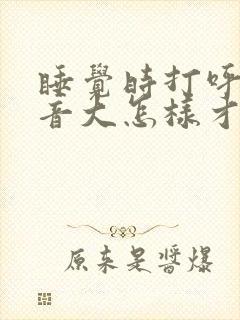 睡覺時打呼
音大怎樣才
原来是醬爆